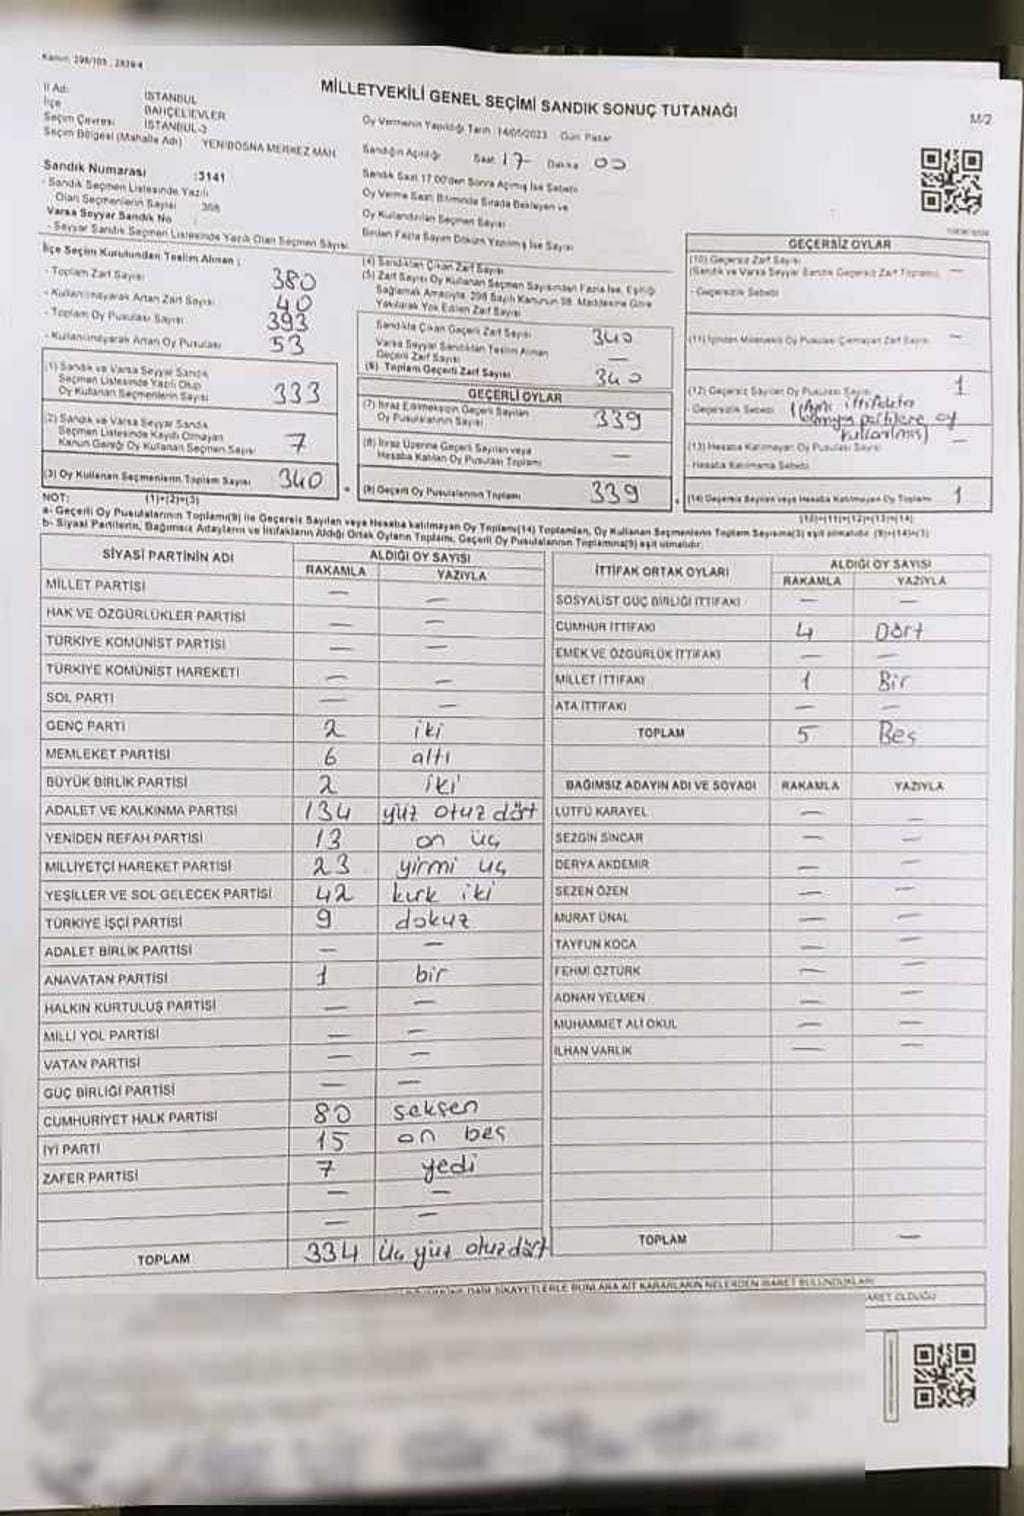 Kanun: 298/105 , 2839/4
MİLLETVEKİLİ GENEL SEÇİMİ SANDIK SONUÇ TUTANAĞI
M/2
İl Adı İSTANBUL
İlçe BAHÇELİEVLER
Seçim Çevresi İSTANBUL-3
Seçim Bölgesi (Mahalle Adı) YENİBOSNA MERKEZ MAH
Sandık Numarası :3141
- Sandık Seçmen Listesinde Yazılı
Olan Seçmenlerin Sayısı
Varsa Seyyar Sandık No
- Seyyar Sandık Seçmen Listesinde Yazılı Olan Seçmen Sayısı
Oy Vermenin Yapıldığı Tarih :14/05/2023 Gün: Pazar
Sandığın Açıldığı Saat 17 Dakika 00
Sandık Saat 17.00'den Sonra Açılmış İse Sebebi
Oy Verme Saati Bitiminde Sırada Bekleyen ve
Oy Kullandırılan Seçmen Sayısı
Birden Fazla Sayım Döküm Yapılmış İse Sayısı
İlçe Seçim Kurulundan Teslim Alınan :
- Toplam Zarf Sayısı 380
- Kullanılmayarak Artan Zarf Sayısı 40
- Toplam Oy Pusulası Sayısı 393
- Kullanılmayarak Artan Oy Pusulası 53
(1) Sandık ve Varsa Seyyar Sandık
Seçmen Listesinde Yazılı Olup
Oy Kullanan Seçmenlerin Sayısı 333
(2) Sandık ve Varsa Seyyar Sandık
Seçmen Listesinde Kayıtlı Olmayan
Kanun Gereği Oy Kullanan Seçmen Sayısı 7
(3) Oy Kullanan Seçmenlerin Toplam Sayısı 340
(4) Sandıktan Çıkan Zarf Sayısı
(5) Zarf Sayısı Oy Kullanan Seçmen Sayısından Fazla İse, Eşitliği
Sağlamak Amacıyla, 298 Sayılı Kanunun 98. Maddesine Göre
Yakılarak Yok Edilen Zarf Sayısı
Sandıkta Çıkan Geçerli Zarf Sayısı 340
Varsa Seyyar Sandıktan Teslim Alınan
Geçerli Zarf Sayısı —
(6) Toplam Geçerli Zarf Sayısı 340
GEÇERLİ OYLAR
(7) İtiraz Edilmeksizin Geçerli Sayılan
Oy Pusulalarının Sayısı 339
(8) İtiraz Üzerine Geçerli Sayılan veya
Hesaba Katılan Oy Pusulası Toplamı —
(9) Geçerli Oy Pusulalarının Toplamı 339
GEÇERSİZ OYLAR
(10) Geçersiz Zarf Sayısı
(Sandık ve Varsa Seyyar Sandık Geçersiz Zarf Toplamı) —
- Geçersizlik Sebebi
—
(12) Geçersiz Sayılan Oy Pusulası Sayısı 1
Geçersizlik Sebebi 1 (Aynı ittifakta
partilere oy
kullanılmış)
(13) Hesaba Katılmayan Oy Pusulası Sayısı —
- Hesaba Katılmama Sebebi
(14) Geçersiz Sayılan veya Hesaba Katılmayan Oy Toplamı 1
NOT: (1)+(2)=(3)
(10)+(11)+(12)+(13)=(14)
a- Geçerli Oy Pusulalarının Toplamı(9) ile Geçersiz Sayılan veya Hesaba katılmayan Oy Toplamı(14) Toplamları, Oy Kullanan Seçmenlerin Toplam Sayısına(3) eşit olmalıdır. (9)+(14)=(3)
b- Siyasi Partilerin, Bağımsız Adayların ve İttifakların Aldığı Ortak Oyların Toplamı, Geçerli Oy Pusulalarının Toplamına(9) eşit olmalıdır.
SİYASİ PARTİNİN ADI ALDIĞI OY SAYISI
RAKAMLA YAZIYLA
MİLLET PARTİSİ — —
HAK VE ÖZGÜRLÜKLER PARTİSİ — —
TÜRKİYE KOMÜNİST PARTİSİ — —
TÜRKİYE KOMÜNİST HAREKETİ — —
SOL PARTİ — —
GENÇ PARTİ 2 iki
MEMLEKET PARTİSİ 6 altı
BÜYÜK BİRLİK PARTİSİ 2 iki
ADALET VE KALKINMA PARTİSİ 134 yüz otuz dört
YENİDEN REFAH PARTİSİ 13 on üç
MİLLİYETÇİ HAREKET PARTİSİ 23 yirmi üç
YEŞİLLER VE SOL GELECEK PARTİSİ 42 kırk iki
TÜRKİYE İŞÇİ PARTİSİ 9 dokuz
ADALET BİRLİK PARTİSİ — —
ANAVATAN PARTİSİ 1 bir
HALKIN KURTULUŞ PARTİSİ — —
MİLLİ YOL PARTİSİ — —
VATAN PARTİSİ — —
GÜÇ BİRLİĞİ PARTİSİ — —
CUMHURİYET HALK PARTİSİ 80 seksen
İYİ PARTİ 15 on beş
ZAFER PARTİSİ 7 yedi
— —
— —
TOPLAM 334 Üç yüz otuzdört
İTTİFAK ORTAK OYLARI ALDIĞI OY SAYISI
RAKAMLA YAZIYLA
SOSYALİST GÜÇ BİRLİĞİ İTTİFAKI — —
CUMHUR İTTİFAKI 4 Dört
EMEK VE ÖZGÜRLÜK İTTİFAKI — —
MİLLET İTTİFAKI 1 Bir
ATA İTTİFAKI — —
TOPLAM 5 Beş
BAĞIMSIZ ADAYIN ADI VE SOYADI RAKAMLA YAZIYLA
LÜTFÜ KARAYEL — —
SEZGİN SİNCAR — —
DERYA AKDEMİR — —
SEZEN ÖZEN — —
MURAT ÜNAL — —
TAYFUN KOCA — —
FEHMİ ÖZTÜRK — —
ADNAN YELMEN — —
MUHAMMET ALİ OKUL — —
İLHAN VARLIK — —
TOPLAM —